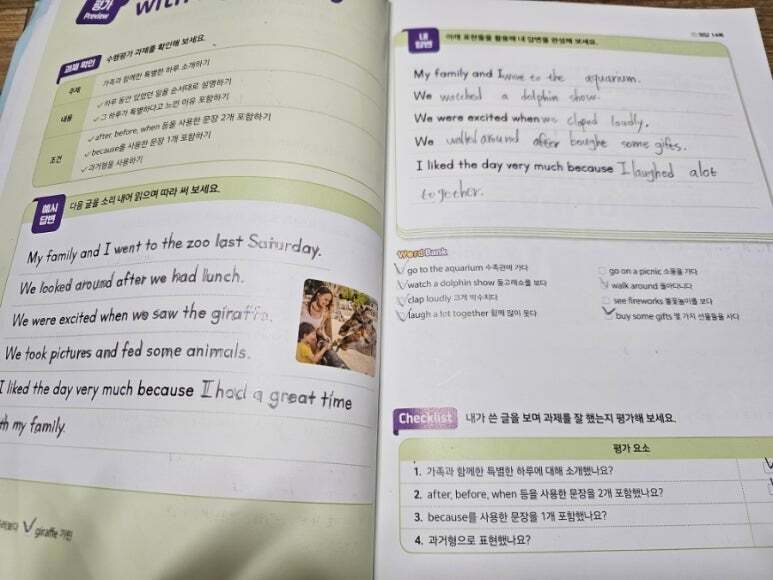 평가
Preview
with
과제 확인
수행평가 과제를 확인해 보세요.
주제
가족과 함께한 특별한 하루 소개하기
내용
✓ 하루 동안 있었던 일을 순서대로 설명하기
✓ 그 하루가 특별하다고 느낀 이유 포함하기
조건
✓ after, before, when 등을 사용한 문장 2개 포함하기
✓ because를 사용한 문장 1개 포함하기
✓ 과거형을 사용하기
예시 답변
다음 글을 소리 내어 읽으며 따라 써 보세요.
My family and I went to the zoo last Saturday.
We looked around after we had lunch.
We were excited when we saw the giraffe.
We took pictures and fed some animals.
I liked the day very much because I had a great time
th my family.
✓ giraffe 기린
내 답변
아래 표현들을 활용해 내 답변을 완성해 보세요.
정답 14쪽
My family and I to the aquarium.
We watched a dolphin show.
We were excited when we claped loudly.
We walked around after boughe some gifes.
I liked the day very much because I laughed a lot
together.
Word Bank
✓ go to the aquarium 수족관에 가다
✓ watch a dolphin show 돌고래쇼를 보다
✓ clap loudly 크게 박수치다
✓ laugh a lot together 함께 많이 웃다
go on a picnic 소풍을 가다
✓ walk around 돌아다니다
see fireworks 불꽃놀이를 보다
✓ buy some gifts 몇 가지 선물들을 사다
Checklist
내가 쓴 글을 보며 과제를 잘 했는지 평가해 보세요.
평가 요소
1. 가족과 함께한 특별한 하루에 대해 소개했나요?
2. after, before, when 등을 사용한 문장을 2개 포함했나요?
3. because를 사용한 문장을 1개 포함했나요?
4. 과거형으로 표현했나요?